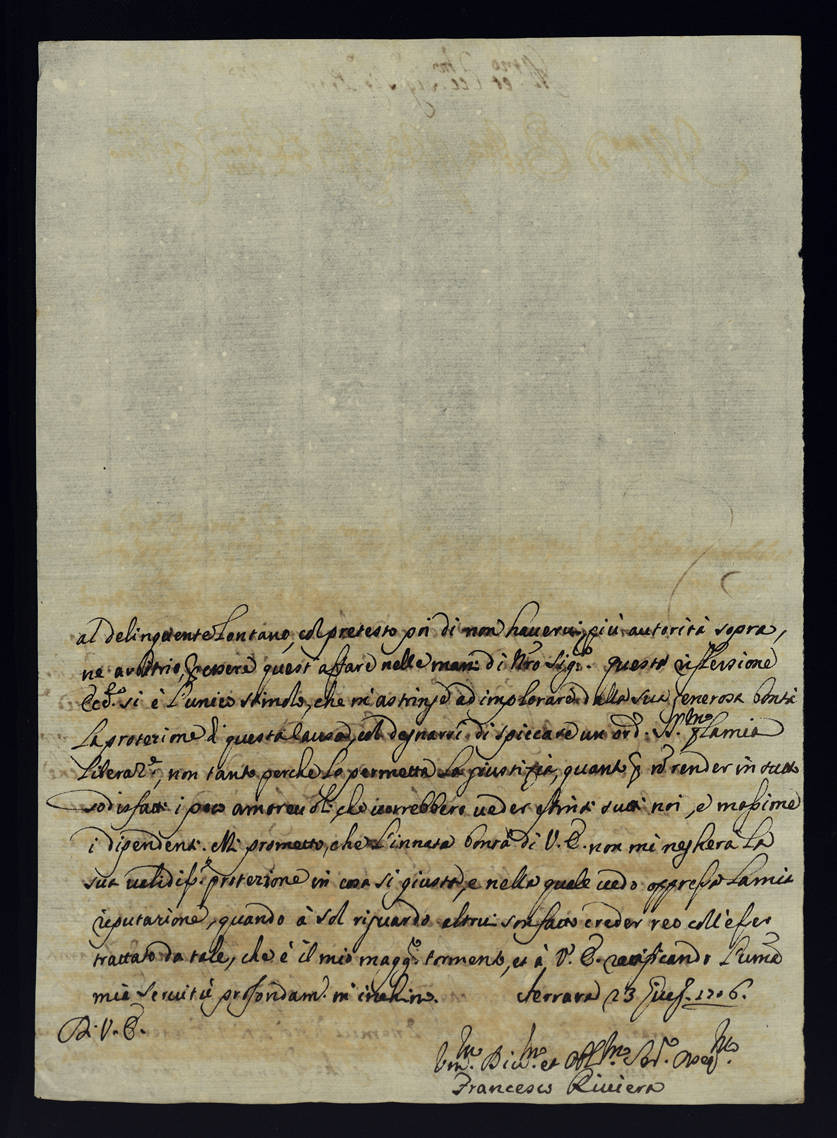 al delinquente lontano, col pretesto poi di non haverui più autorità sopra,
ne arbitrio essere quest'affare nelle man di Nro Sigre. questa riflessione
Ecc. si è l'unico stimolo, che m'astringe ad implorare dalla sua generosa bontà
la protezione di questa causa, col degnarsi di spiccare un ord. la mia
liberaz.e, non tanto perche lo permetta la giustizia, quanto non render in tutto
sodisfatti i poco che vorrebbero veder estinti tutti noi, e massime
i dipendenti. Mi prometto, che l'innata bontà di V. E. non mi negherà la
sua validiss.a protezione in cosa si giusta, e nella quale vedo oppressa la mia
riputazione, quando à sol riguardo altrui son fatto creder reo coll'esser
trattato da tale, che è il mio magg.e tormento, et à V. E. ratificando l'
mia servitù profondam.e m'inchino. Ferrara 23 1706.
Di V. E.
Um.mo Div.mo et Obl.mo Ser.e Oseq.mo
Francesco Riviera